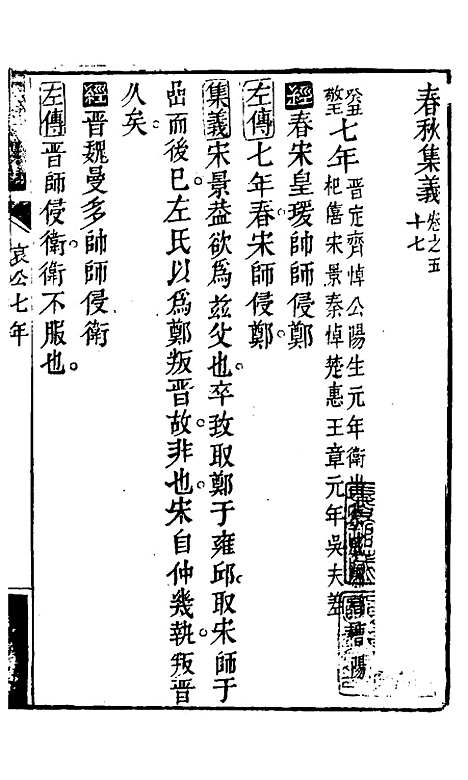 春秋集義卷之五十七
癸丑敬王七年晉定齊悼公陽生元年衛出曹陽杞僖宋景秦悼楚惠王章元年吳夫差
經春宋皇瑗帥師侵鄭
左傳七年春宋師侵鄭
集義宋景葢欲爲兹父也。卒致取鄭于雍邱。取宋師于
嵒而後已。左氏以爲鄭叛晉故。非也。宋自仲幾執。叛晉
久矣。
經晉魏曼多帥師侵衛
左傳晉師侵衛。衛不服也。
哀公七年